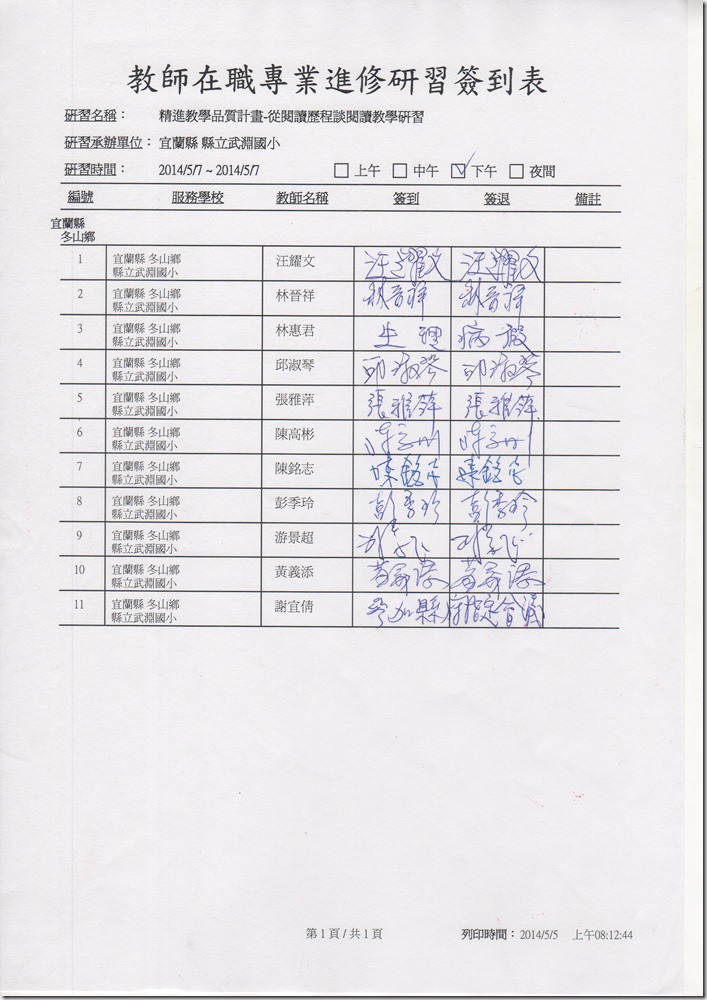 教師在職專業進修研習簽到表
研習名稱： 精進教學品質計畫-從閱讀歷程談閱讀教學研習
研習承辦單位： 宜蘭縣 縣立武淵國小
研習時間： 2014/5/7 ~ 2014/5/7 □ 上午 □ 中午 ☑ 下午 □ 夜間
編號 服務學校 教師名稱 簽到 簽退 備註
宜蘭縣
冬山鄉
1 宜蘭縣 冬山鄉 汪耀文 汪耀文 汪耀文
縣立武淵國小
2 宜蘭縣 冬山鄉 林晉祥 林晉祥 林晉祥
縣立武淵國小
3 宜蘭縣 冬山鄉 林惠君 生理 病假
縣立武淵國小
4 宜蘭縣 冬山鄉 邱淑琴 邱淑琴 邱淑琴
縣立武淵國小
5 宜蘭縣 冬山鄉 張雅萍 張雅萍 張雅萍
縣立武淵國小
6 宜蘭縣 冬山鄉 陳高彬
縣立武淵國小
7 宜蘭縣 冬山鄉 陳銘志 陳銘志 陳銘志
縣立武淵國小
8 宜蘭縣 冬山鄉 彭季玲 彭季玲 彭季玲
縣立武淵國小
9 宜蘭縣 冬山鄉 游景超
縣立武淵國小
10 宜蘭縣 冬山鄉 黃義添 黃義添 黃義添
縣立武淵國小
11 宜蘭縣 冬山鄉 謝宜倩 參加縣府指定會議
縣立武淵國小
第 1 頁 / 共 1 頁 列印時間： 2014/5/5 上午08:12:44